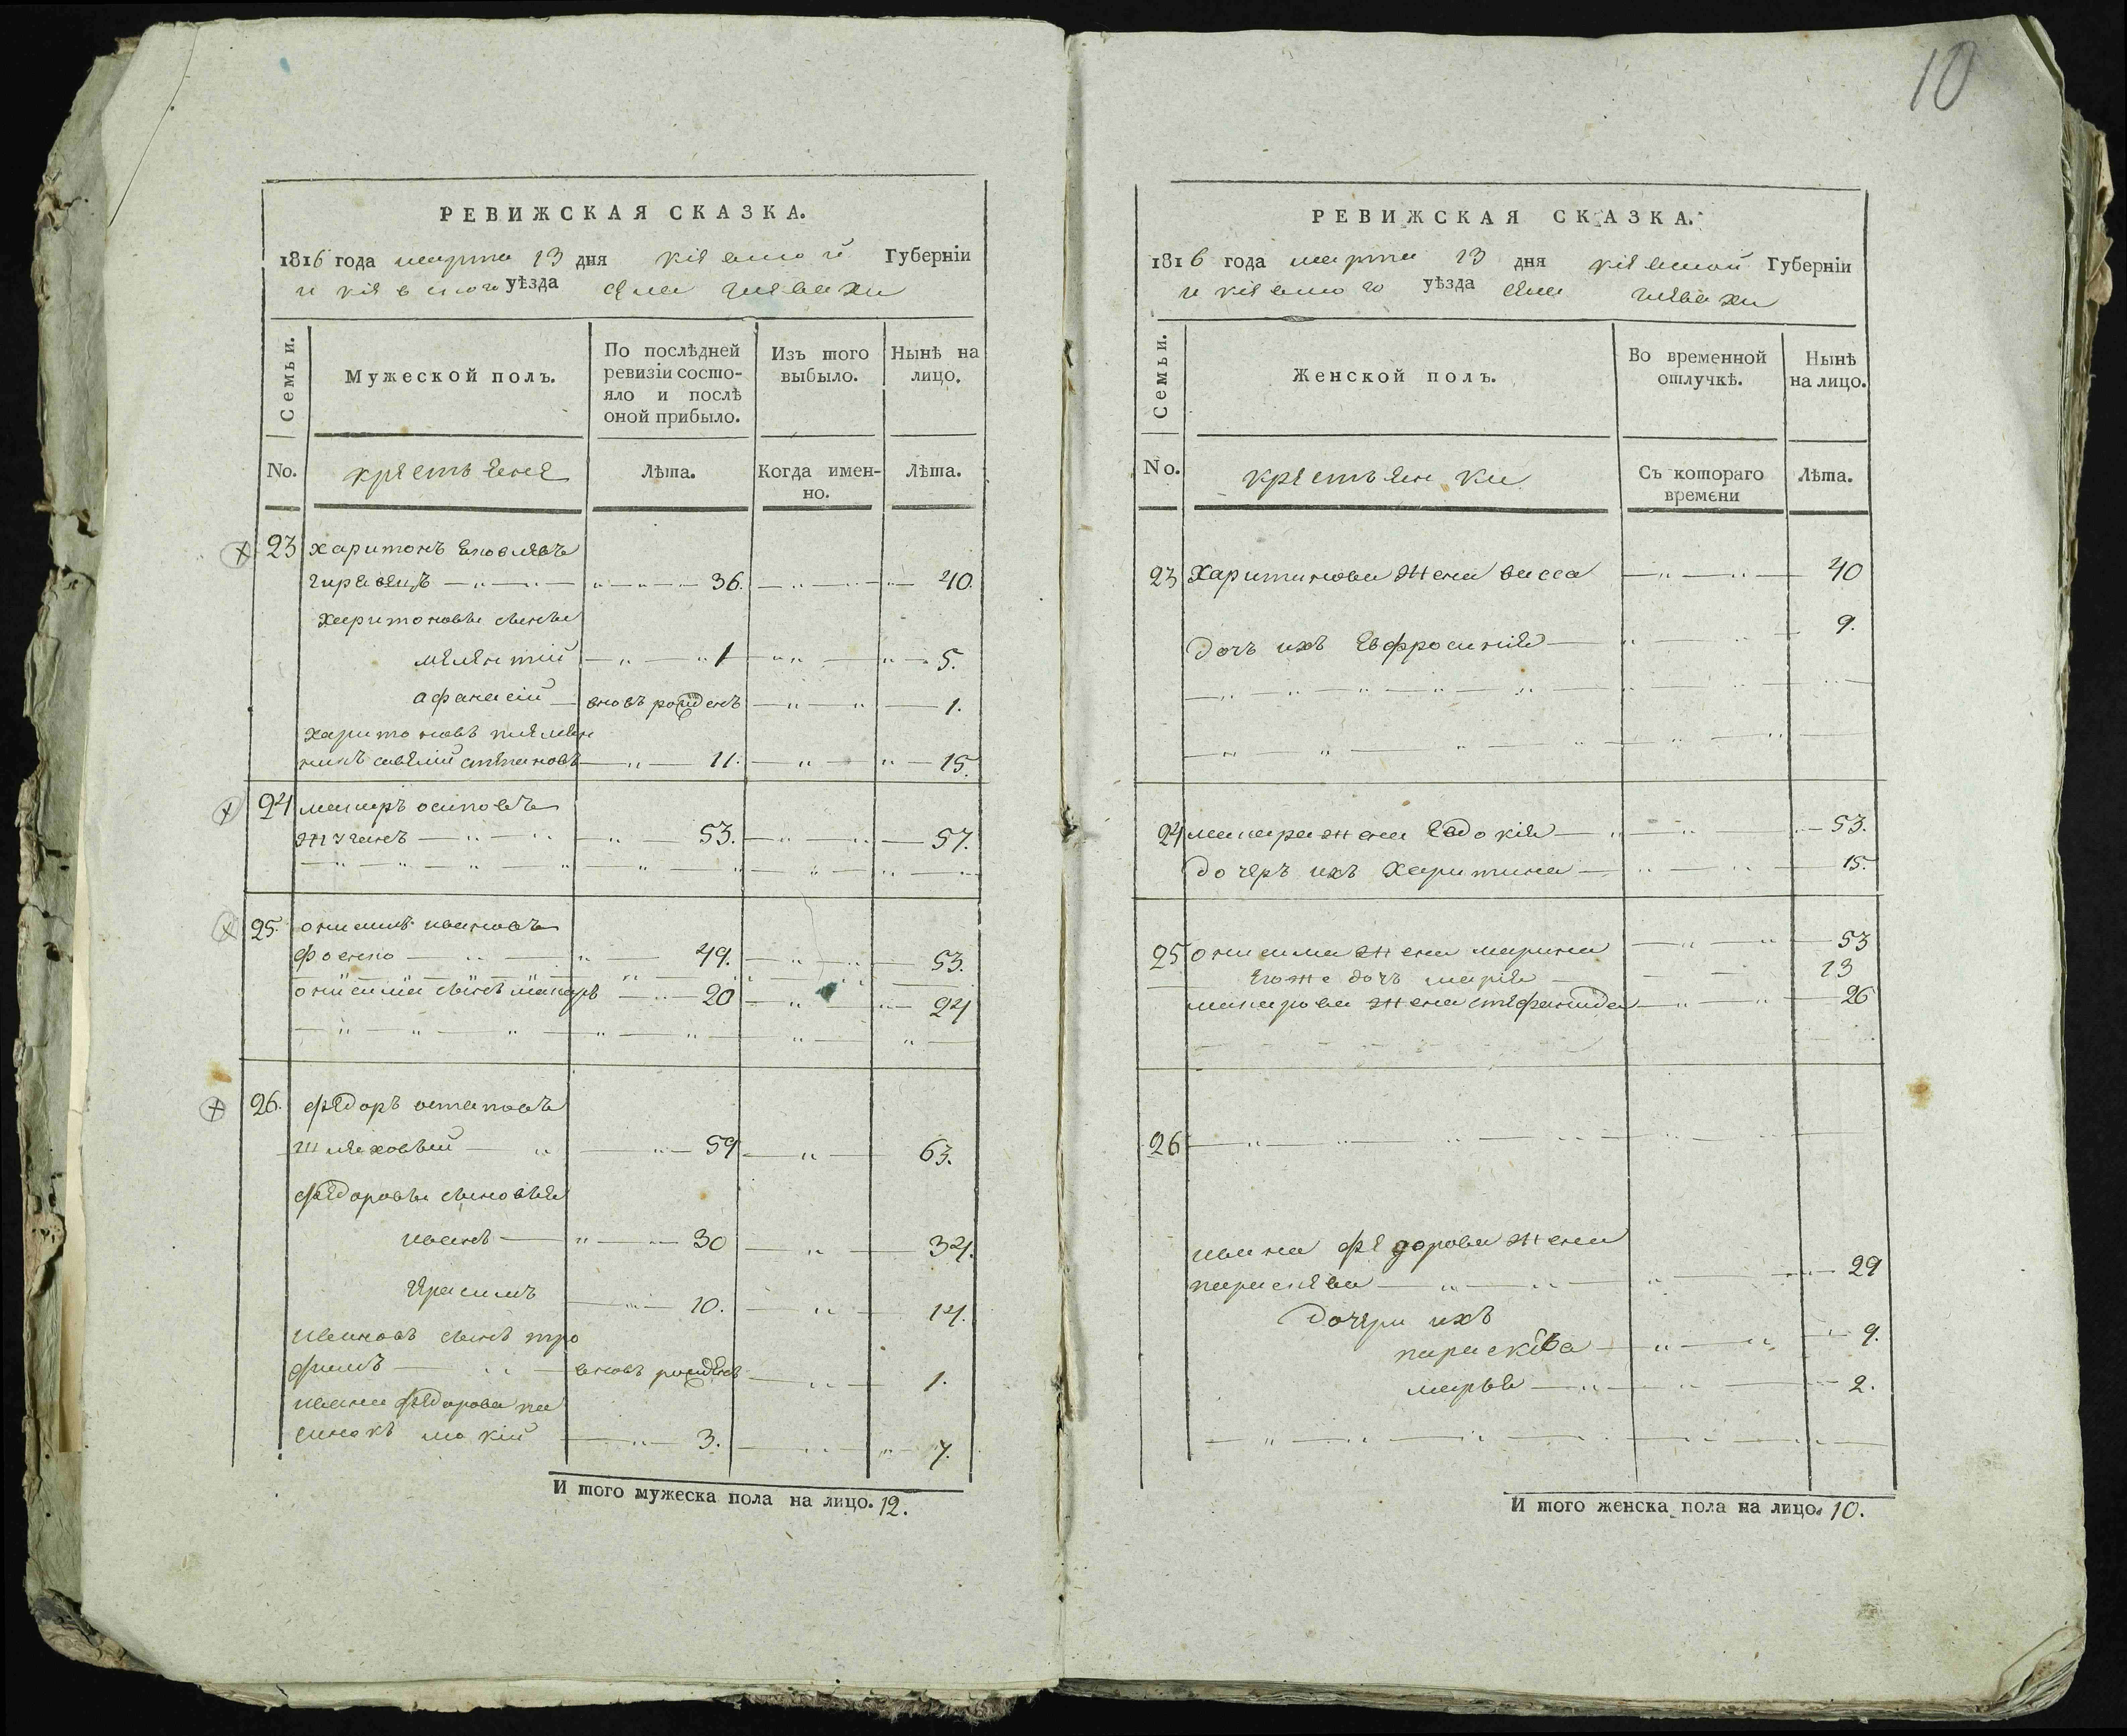 10
РЕВИЖСКАЯ СКАЗКА.
1816 года марта 13 дня кіевской Губерніи
и кіевского уѣзда села глевахи
Семьи.
Мужеской полъ.
По послѣдней ревизіи состояло и послѣ оной прибыло.
Изъ того выбыло.
Нынѣ на лицо.
No.
крестьяне
Лѣта.
Когда именно.
Лѣта.
23 харитонъ яковлевъ
36. 40.
харитоновы сыны
мелентій 1 5.
афанасій вновь рожденъ 1.
харитоновъ племен
никъ савелій степановъ 11. 15.
24 макаръ осиповъ
53. 57.
25. онисимъ ивановъ
49. 53.
онисима сынъ макаръ 20 24
26. федоръ остаповъ
шляховый 59 63.
федоровы сыновья
иванъ 30 34.
герасимъ 10. 14.
ивановъ сынъ тро
фимъ вновь рожденъ 1.
ивана федорова па
синокъ мокій 3. 7.
И того мужеска пола на лицо. 12.
РЕВИЖСКАЯ СКАЗКА.
1816 года марта 13 дня кіевской Губерніи
и кіевского уѣзда села глевахи
Семьи.
Женской полъ.
Во временной отлучкѣ.
Нынѣ на лицо.
No.
крестьянки
Съ котораго времени
Лѣта.
23 Харитинова жена васса 40
дочь ихъ Евфросинія 9.
24 макара жена Евдокія 53.
дочерь ихъ Харитина 15.
25 онисима жена марина 53
его же дочь марія 13
макарова жена стефанида 26
26
ивана федорова жена
параскева 29
дочери ихъ
параскева 9.
марья 2.
И того женска пола на лицо. 10.